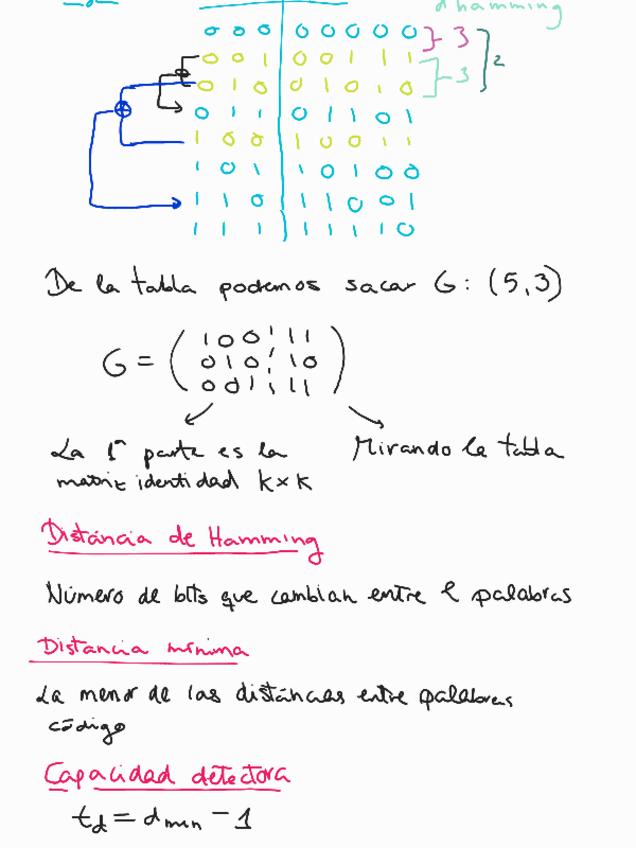 d hamming
0 0 0 0 0 0 0 0 3
0 0 1 0 0 1 1 1 2
0 1 0 0 1 0 1 0 3
0 1 1 0 1 1 0 1
1 0 0 1 0 0 1 1
1 0 1 1 0 1 0 0
1 1 0 1 1 0 0 1
1 1 1 1 1 1 1 0
De la tabla podemos sacar G: (5,3)
1 0 0 1 1
G = 0 1 0 1 0
0 0 1 1 1
La 1ª parte es la Mirando la tabla
matriz identidad k×k
Distancia de Hamming
Número de bits que cambian entre 2 palabras
Distancia mínima
La menor de las distancias entre palabras
código
Capacidad detectora
td = dmin - 1